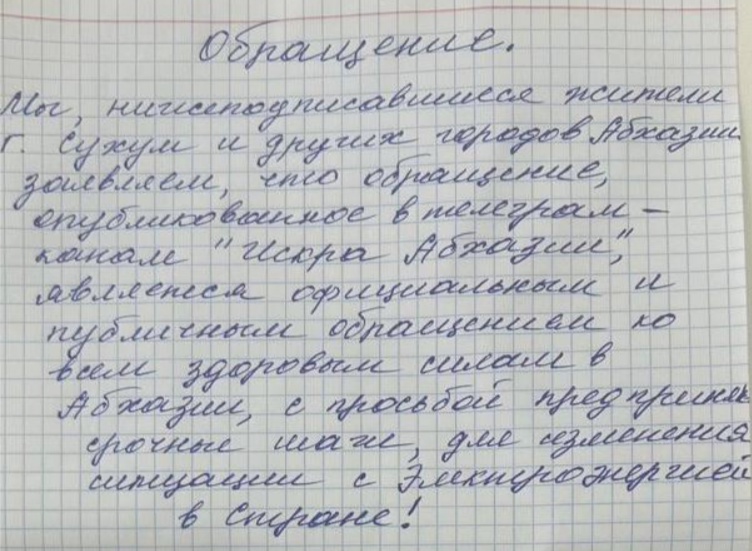 Обращение.
Мы, нижеподписавшиеся жители
г. Сухум и других городов Абхазии
заявляем, что обращение,
опубликованное в телеграм –
канале "Искра Абхазии",
является официальным и
публичным обращением ко
всем здоровым силам в
Абхазии, с просьбой предприня
срочные шаги, для изменения
ситуации с Электроэнергией
в Стране!